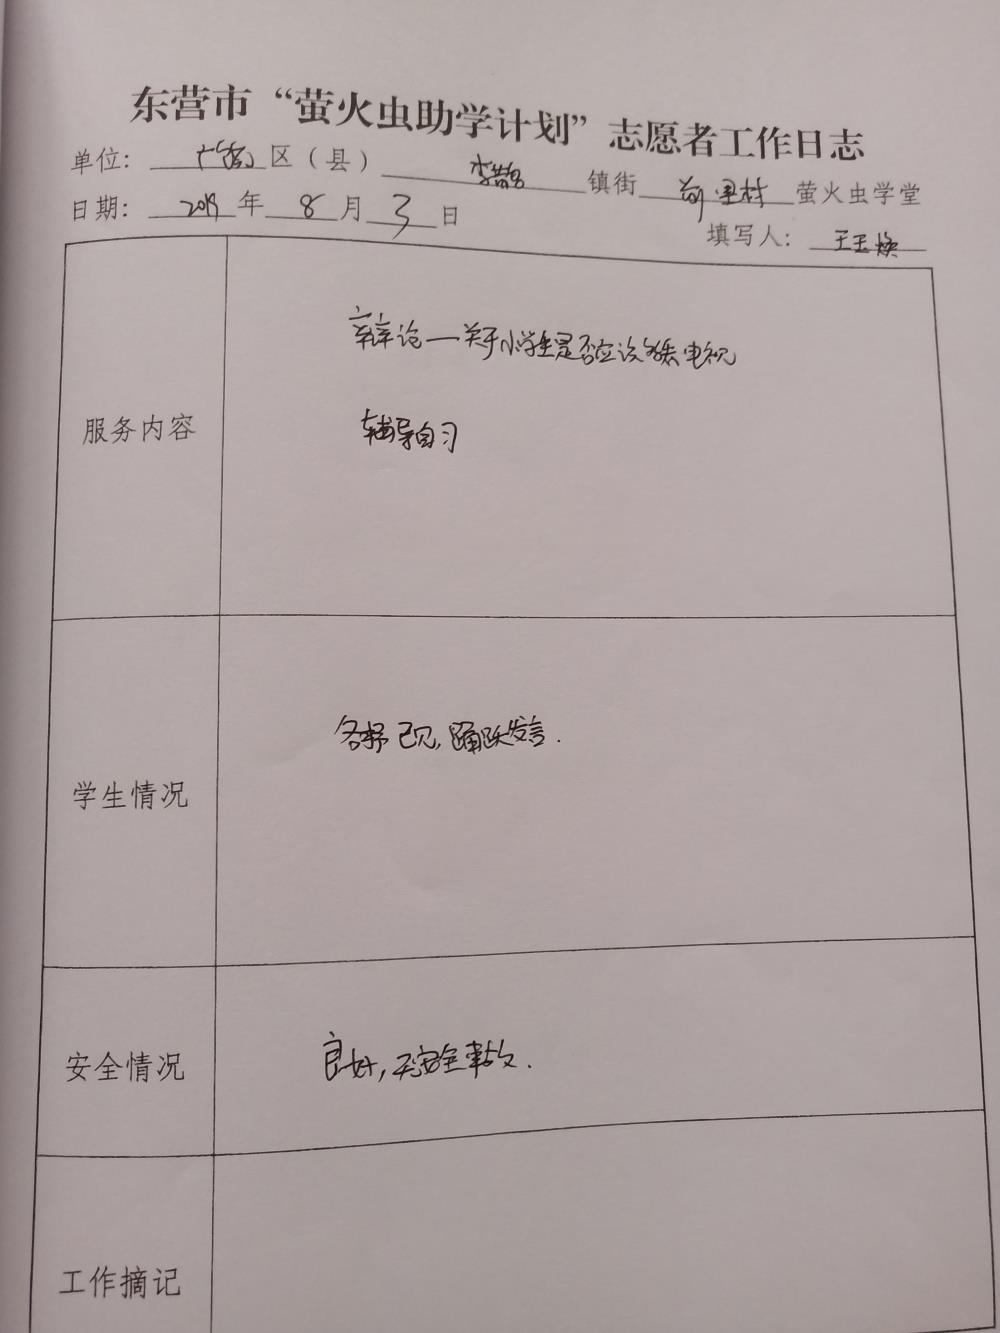 东营市“萤火虫助学计划”志愿者工作日志
单位：广饶区（县）李鹊镇街前里村萤火虫学堂
日期：2019年8月3日
填写人：王玉焕
服务内容
辩论—关于小学生是否应该多看电视
辅导自习
学生情况
各抒己见，踊跃发言.
安全情况
良好，无安全事故.
工作摘记